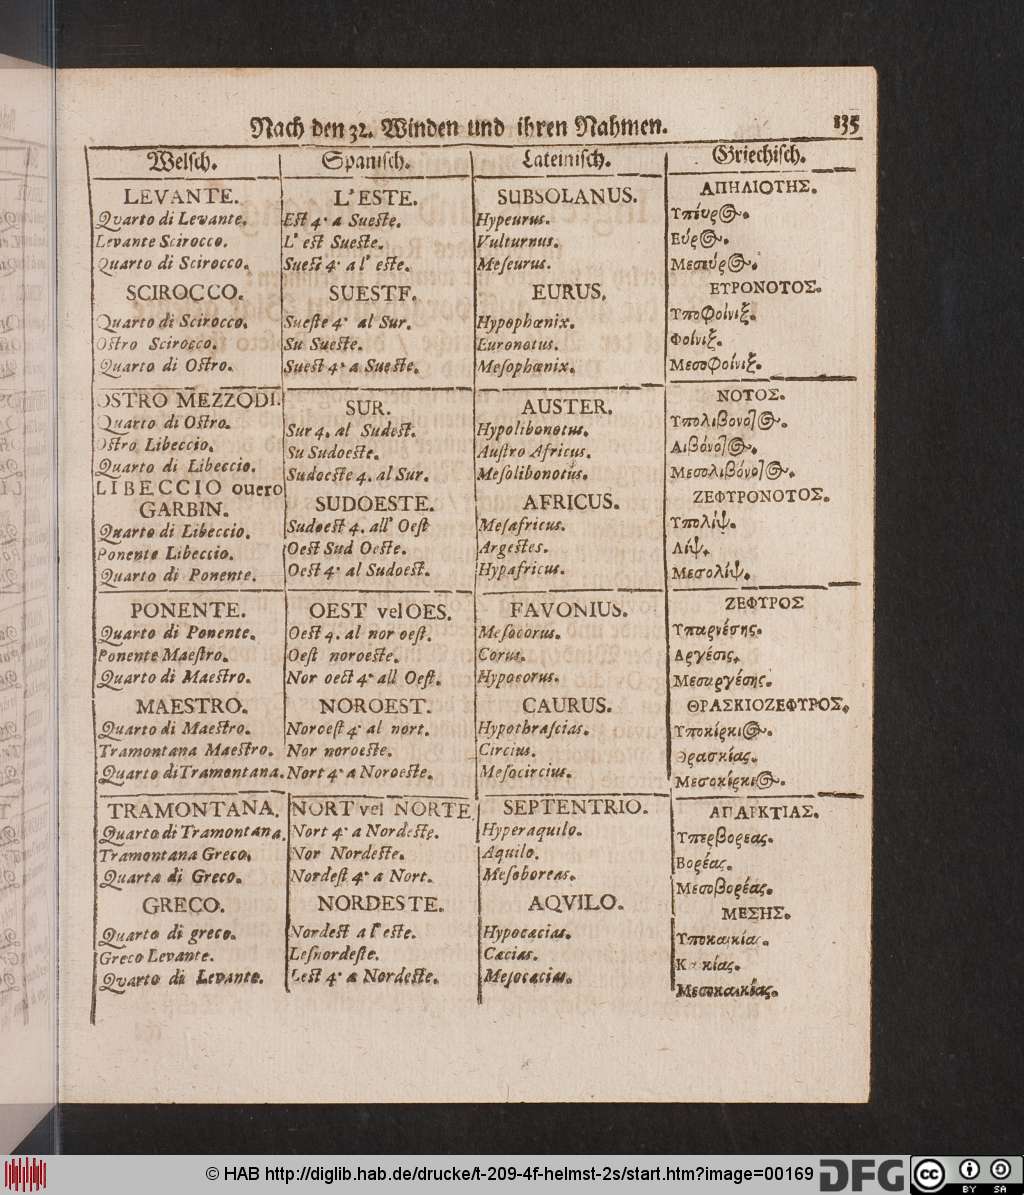 Nach den 32. Winden und ihren Nahmen. 135
Welsch.
LEVANTE.
Qvarto di Levante.
Levante Scirocco.
Quarto di Scirocco.
SCIROCCO.
Quarto di Scirocco.
Ostro Scirocco.
Quarto di Ostro.
OSTRO MEZZODI.
Quarto di Ostro.
Ostro Libeccio.
Quarto di Libeccio.
LIBECCIO ouero
GARBIN.
Quarto di Libeccio.
Ponente Libeccio.
Quarto di Ponente.
PONENTE.
Quarto di Ponente.
Ponente Maeſtro.
Quarto di Maestro.
MAESTRO.
Quarto di Maestro.
Tramontana Maestro.
Quarto di Tramontana.
TRAMONTANA.
Quarto di Tramontana.
Tramontana Greco.
Quarta di Greco.
GRECO.
Quarto di greco.
Greco Levante.
Qvarto di Levante.
Spanisch.
L'ESTE.
Est 4° a Sueste.
L' est Sueste.
Suest 4° a l' este.
SUESTE.
Sueſte 4° al Sur.
Su Sueste.
Suest 4° a Sueste.
SUR.
Sur 4. al Sudest.
Su Sudoeste.
Sudoeste 4. al Sur.
SUDOESTE.
Sudoest 4. all' Oeſt
Oest Sud Oeste.
Oest 4° al Sudoest.
OEST vel OES.
Oest 4. al nor oeſt.
Oeſt noroeste.
Nor oest 4° all Oeſt.
NOROEST.
Noroeſt 4° al nort.
Nor noroeste.
Nort 4° a Noroeste.
NORT vel NORTE.
Nort 4° a Nordeste.
Nor Nordeste.
Nordeſt 4° a Nort.
NORDESTE.
Nordest a l'este.
Lesnordeſte.
Lest 4° a Nordeste.
Lateinisch.
SUBSOLANUS.
Hypeurus.
Vulturnus.
Meſeurus.
EURUS.
Hypophœnix.
Euronotus.
Meſophœnix.
AUSTER.
Hypolibonotus.
Auſtro Africus.
Meſolibonotus.
AFRICUS.
Meſafricus.
Argestes.
Hypafricus.
FAVONIUS.
Meſocorus.
Corus.
Hypocorus.
CAURUS.
Hypothraſcias.
Circius.
Meſocircius.
SEPTENTRIO.
Hyperaquilo.
Aquilo.
Meſoboreas.
AQVILO.
Hypocæcias.
Cæcias.
Meſocæcias.
Griechisch.
ΑΠΗΛΙΟΤΗΣ.
Υπέυρος.
Εύρος.
Μεσεύρος.
ΕΥΡΟΝΟΤΟΣ.
Υποφοίνιξ.
Φοίνιξ.
Μεσοφοίνιξ.
ΝΟΤΟΣ.
Υπολιβονοτος.
Λιβόνοτος.
Μεσολιβόνοτος.
ΖΕΦΥΡΟΝΟΤΟΣ.
Υπολίψ.
Λίψ.
Μεσολίψ.
ΖΕΦΥΡΟΣ
Υπαργέστης.
Αργέστις.
Μεσαργέστης.
ΘΡΑΣΚΙΟΖΕΦΥΡΟΣ.
Υποκίρκιος.
Θρασκίας.
Μεσοκίρκιος.
ΑΠΑΡΚΤΙΑΣ.
Υπερβορεας.
Βορέας.
Μεσοβορέας.
ΜΕΣΗΣ.
Υποκαικίας.
Καικίας.
Μεσοκαικίας.
© HAB http://diglib.hab.de/drucke/t-209-4f-helmst-2s/start.htm?image=00169 DFG cc BY SA